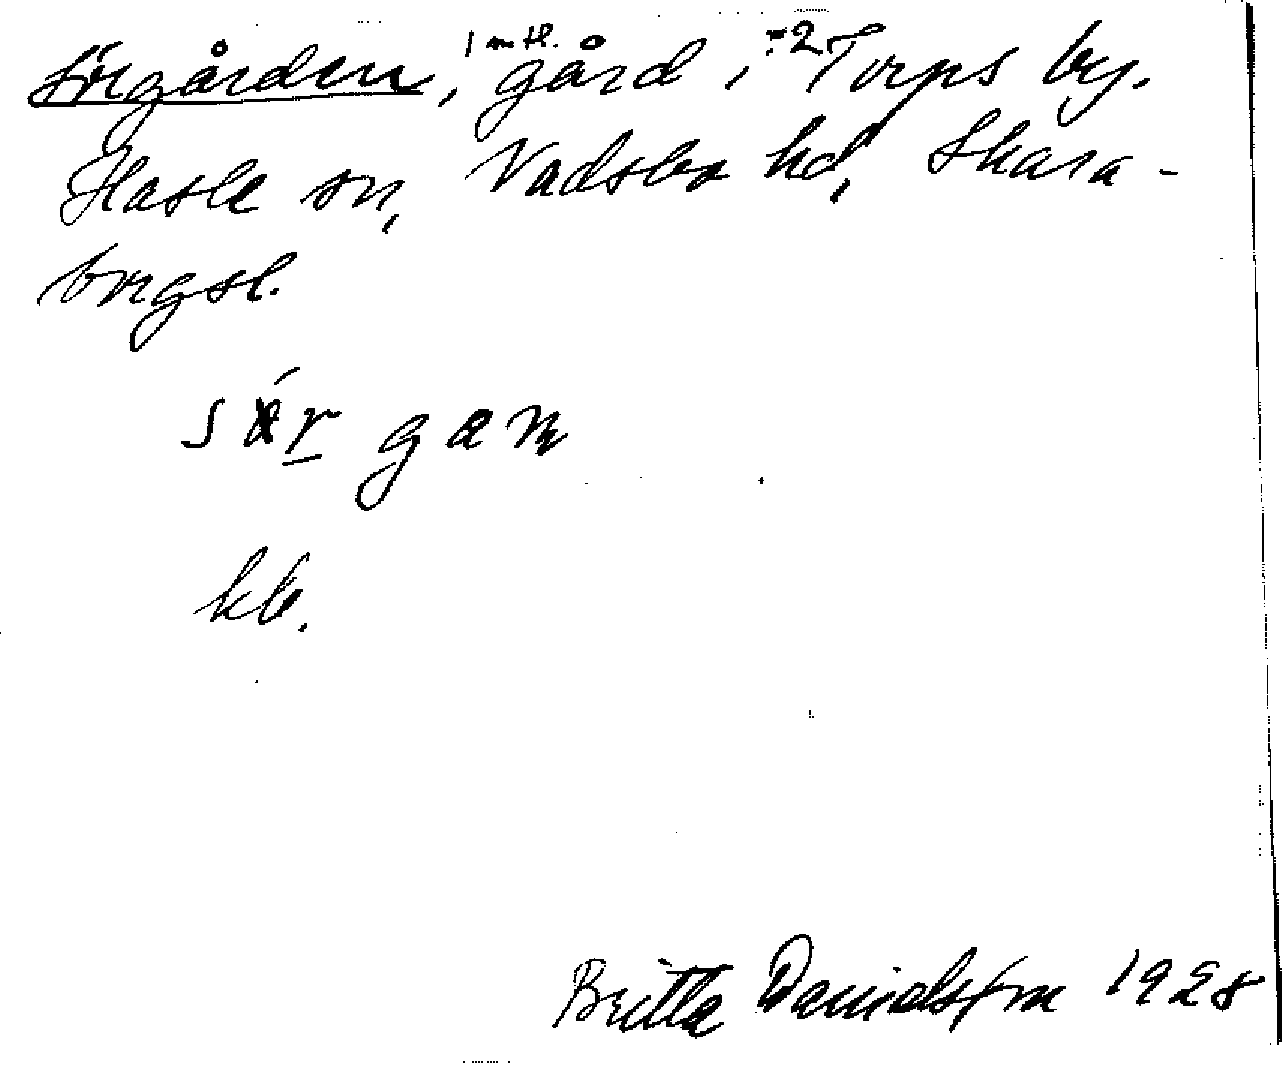 Sörgården, 1 mtl. gård i =2 Torps by.
Hasle sn, Vadsbo hd, Skara-
borgsl.
sær gan
kb.
Britta Danielsson 1928